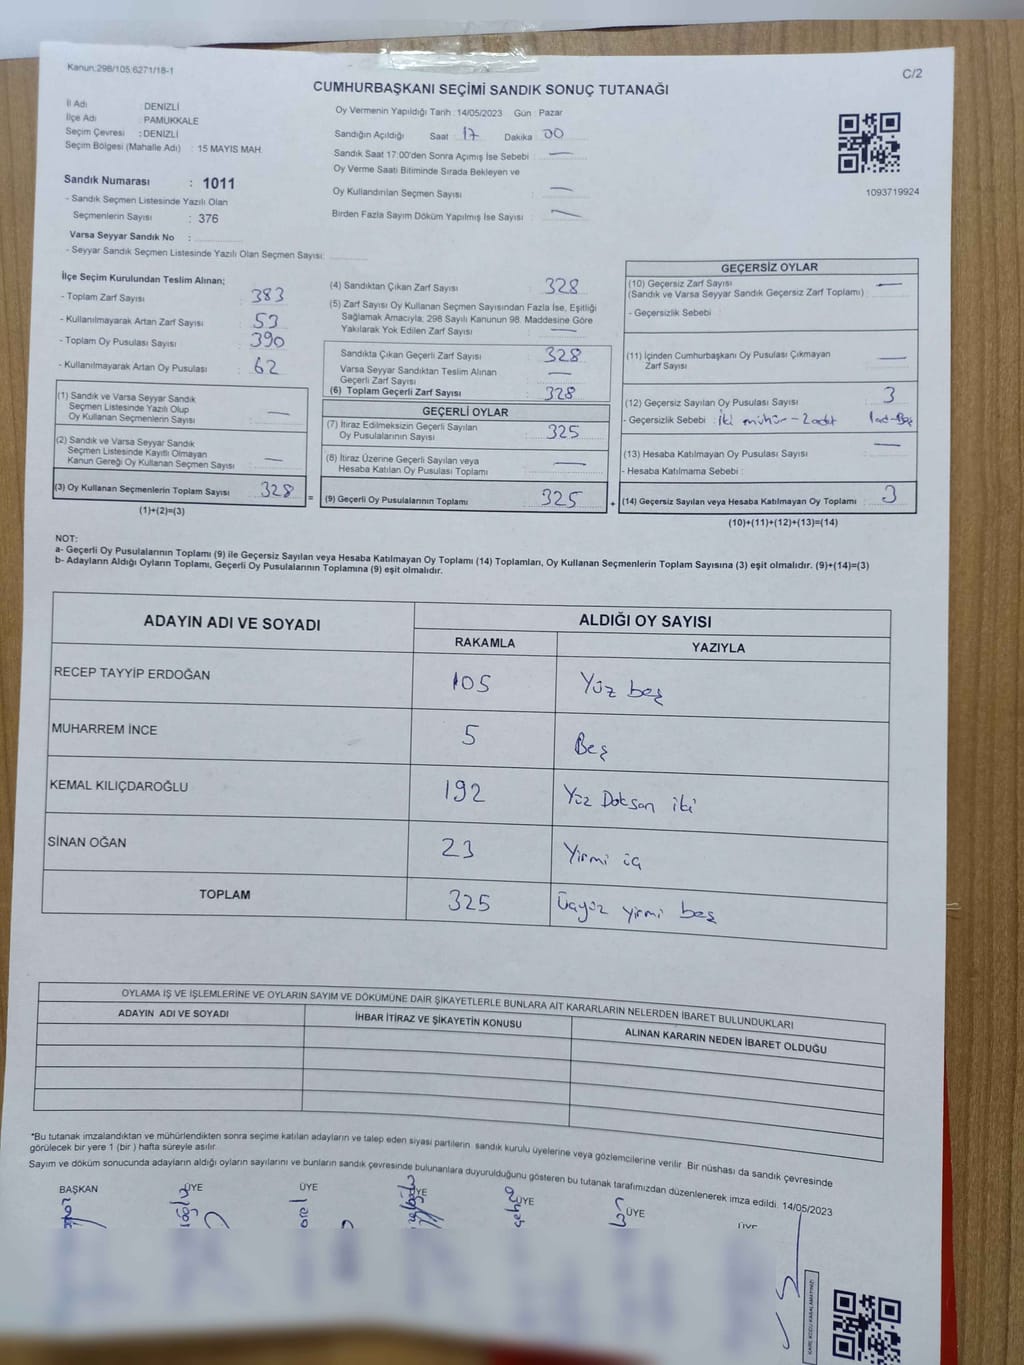 Kanun:298/105;6271/18-1
C/2
CUMHURBAŞKANI SEÇİMİ SANDIK SONUÇ TUTANAĞI
İl Adı : DENİZLİ
İlçe Adı : PAMUKKALE
Seçim Çevresi : DENİZLİ
Seçim Bölgesi (Mahalle Adı) : 15 MAYIS MAH.
Sandık Numarası : 1011
- Sandık Seçmen Listesinde Yazılı Olan
Seçmenlerin Sayısı : 376
Varsa Seyyar Sandık No :
- Seyyar Sandık Seçmen Listesinde Yazılı Olan Seçmen Sayısı:
Oy Vermenin Yapıldığı Tarih : 14/05/2023 Gün : Pazar
Sandığın Açıldığı Saat 17 Dakika 00
Sandık Saat 17:00'den Sonra Açımış İse Sebebi : —
Oy Verme Saati Bitiminde Sırada Bekleyen ve
Oy Kullandırılan Seçmen Sayısı : —
Birden Fazla Sayım Döküm Yapılmış İse Sayısı : —
1093719924
İlçe Seçim Kurulundan Teslim Alınan;
- Toplam Zarf Sayısı : 383
- Kullanılmayarak Artan Zarf Sayısı : 53
- Toplam Oy Pusulası Sayısı : 390
- Kullanılmayarak Artan Oy Pusulası : 62
(1) Sandık ve Varsa Seyyar Sandık
Seçmen Listesinde Yazılı Olup
Oy Kullanan Seçmenlerin Sayısı : —
(2) Sandık ve Varsa Seyyar Sandık
Seçmen Listesinde Kayıtlı Olmayan
Kanun Gereği Oy Kullanan Seçmen Sayısı : —
(3) Oy Kullanan Seçmenlerin Toplam Sayısı : 328 =
(1)+(2)=(3)
(4) Sandıktan Çıkan Zarf Sayısı : 328
(5) Zarf Sayısı Oy Kullanan Seçmen Sayısından Fazla İse, Eşitliği
Sağlamak Amacıyla; 298 Sayılı Kanunun 98. Maddesine Göre
Yakılarak Yok Edilen Zarf Sayısı : —
Sandıkta Çıkan Geçerli Zarf Sayısı : 328
Varsa Seyyar Sandıktan Teslim Alınan
Geçerli Zarf Sayısı : —
(6) Toplam Geçerli Zarf Sayısı : 328
GEÇERLİ OYLAR
(7) İtiraz Edilmeksizin Geçerli Sayılan
Oy Pusulalarının Sayısı : 325
(8) İtiraz Üzerine Geçerli Sayılan veya
Hesaba Katılan Oy Pusulası Toplamı : —
(9) Geçerli Oy Pusulalarının Toplamı : 325 +
GEÇERSİZ OYLAR
(10) Geçersiz Zarf Sayısı : —
(Sandık ve Varsa Seyyar Sandık Geçersiz Zarf Toplamı)
- Geçersizlik Sebebi :
(11) İçinden Cumhurbaşkanı Oy Pusulası Çıkmayan
Zarf Sayısı : —
(12) Geçersiz Sayılan Oy Pusulası Sayısı : 3
- Geçersizlik Sebebi : İki mühür - 2 adet 1 ad-Boş
(13) Hesaba Katılmayan Oy Pusulası Sayısı : —
- Hesaba Katılmama Sebebi :
(14) Geçersiz Sayılan veya Hesaba Katılmayan Oy Toplamı : 3
(10)+(11)+(12)+(13)=(14)
NOT:
a- Geçerli Oy Pusulalarının Toplamı (9) ile Geçersiz Sayılan veya Hesaba Katılmayan Oy Toplamı (14) Toplamları, Oy Kullanan Seçmenlerin Toplam Sayısına (3) eşit olmalıdır. (9)+(14)=(3)
b- Adayların Aldığı Oyların Toplamı, Geçerli Oy Pusulalarının Toplamına (9) eşit olmalıdır.
ADAYIN ADI VE SOYADI ALDIĞI OY SAYISI
RAKAMLA YAZIYLA
RECEP TAYYİP ERDOĞAN 105 Yüz beş
MUHARREM İNCE 5 Beş
KEMAL KILIÇDAROĞLU 192 Yüz Doksan iki
SİNAN OĞAN 23 Yirmi üç
TOPLAM 325 Üçyüz yirmi beş
OYLAMA İŞ VE İŞLEMLERİNE VE OYLARIN SAYIM VE DÖKÜMÜNE DAİR ŞİKAYETLERLE BUNLARA AİT KARARLARIN NELERDEN İBARET BULUNDUKLARI
ADAYIN ADI VE SOYADI İHBAR İTİRAZ VE ŞİKAYETİN KONUSU ALINAN KARARIN NEDEN İBARET OLDUĞU
*Bu tutanak imzalandıktan ve mühürlendikten sonra seçime katılan adayların ve talep eden siyasi partilerin. sandık kurulu üyelerine veya gözlemcilerine verilir. Bir nüshası da sandık çevresinde
görülecek bir yere 1 (bir ) hafta süreyle asılır.
Sayım ve döküm sonucunda adayların aldığı oyların sayılarını ve bunların sandık çevresinde bulunanlara duyurulduğunu gösteren bu tutanak tarafımızdan düzenlenerek imza edildi. 14/05/2023
BAŞKAN ÜYE ÜYE ÜYE ÜYE ÜYE ÜYE
KARE KODU KARALAMAYINIZ!